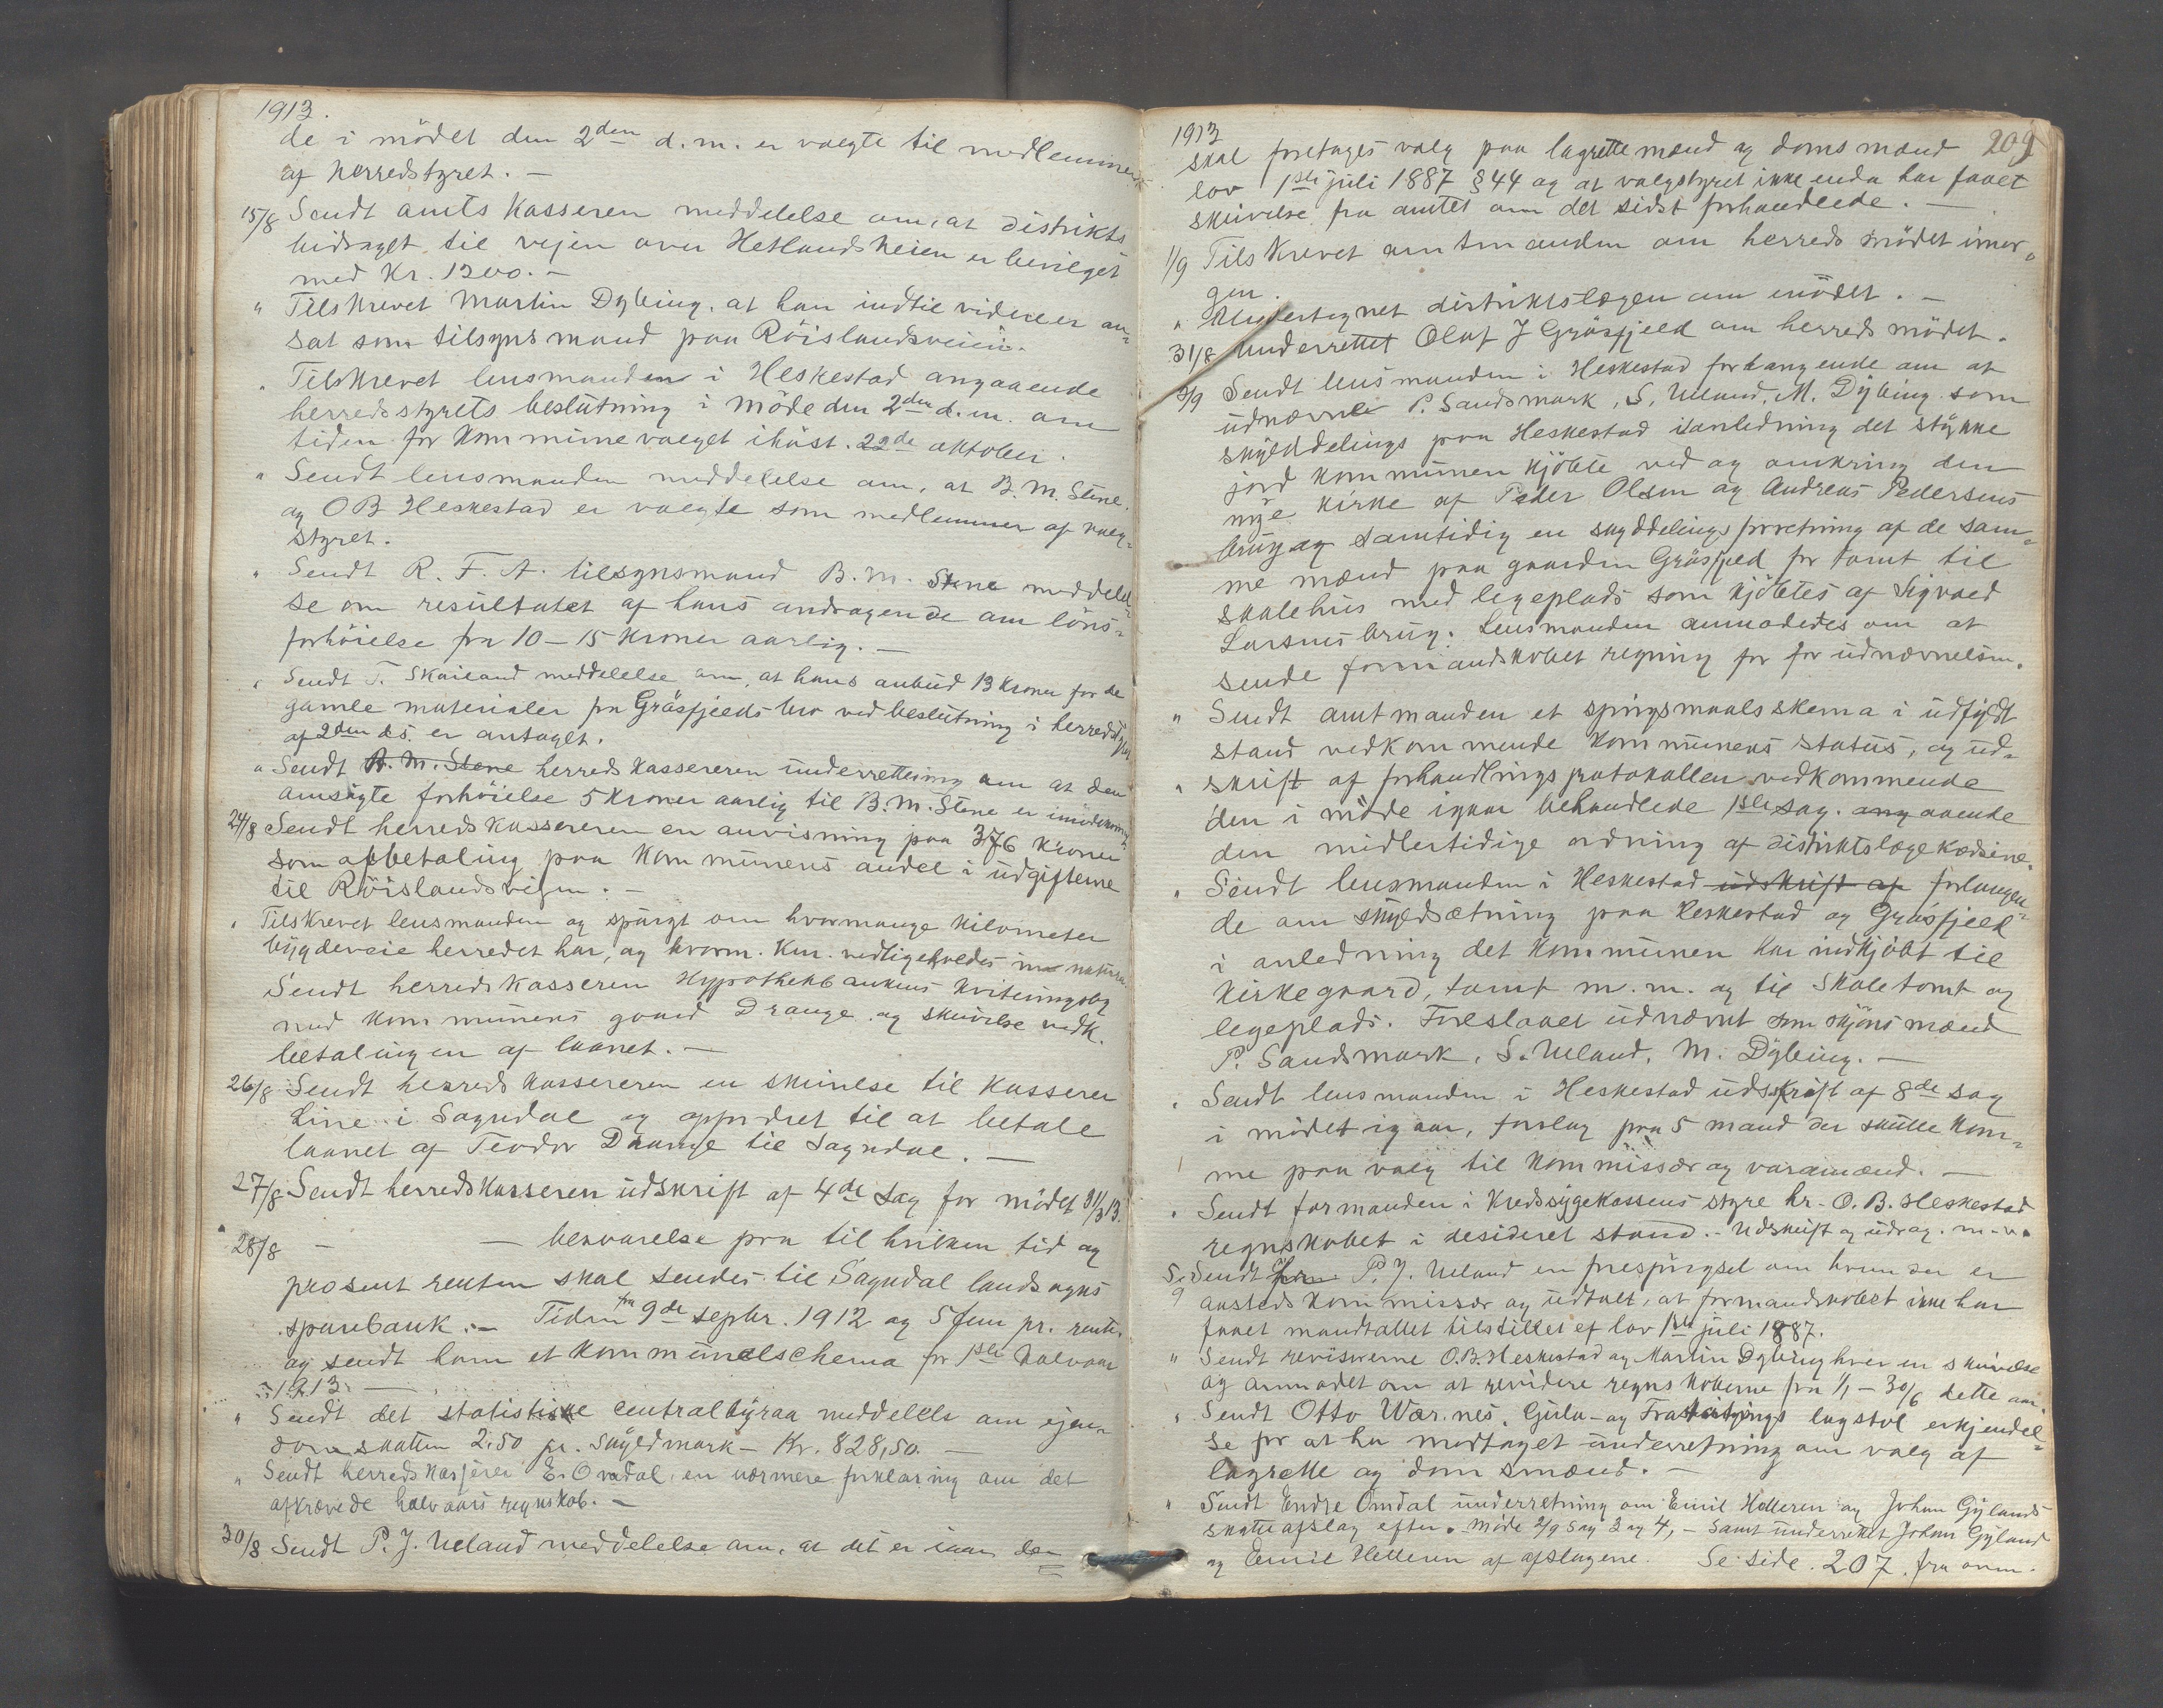 1913.
de i mödet den 2den d.m. er valgte til medlemmer
af herredstyret. —
15/8 Sendt amts kasseren meddelelse om, at distrikts
bidraget til vejen over Hetlandsheien er bevilget
med Kr. 1200. —
" Tilskrevet Martin Dybing, at han indtil videre er an-
sat som tilsynsmand paa Röislandsveien.
" Tilskrevet lensmanden i Heskestad angaaende
herredsstyrets beslutning i möde den 2den d.m. om
tiden for kommunevalget ihöst. 22de oktober.
" Sendt lensmanden meddelelse om, at B. M. Stene
og OB Heskestad er valgte som medlemmer af valg-
styret.
" Sendt R. F. A. tilsynsmand B. M. Stene meddelel-
se om resultatet af hans andragende om löns-
forhöielse fra 10 – 15 kroner aarlig. —
" Sendt T. Skailand meddelelse om, at hans anbud 13 kroner for de
gamle materialer fra Gräsfjelds bro ved beslutning i herredstyret
af 2den ds. er antaget.
" Sendt B. M. Stene herredskassereren underretning om at den
ansögte forhöielse 5 kroner aarlig til B. M. Stene er imödekommet
24/8 Sendt herredskassereren en anvisning paa 376 kroner
som afbetaling paa kommunens andel i udgifterne
til Röislandsvejen. —
" Tilskrevet lensmanden og spurgt om hvormange kilometer
bygdeveie herredet har, og hvorm. km. vedligeholdes in natura.
Sendt herredskasseren Hypothekbankens kviteringsbog
med kommunens gaard Drange og skrivelse vedk.
betalingen af laanet. —
26/8 Sendt herredskassereren en skrivelse til kasserer
Line i Sogndal og opfordret til at betale
laanet af Teodor Drange til Sogndal. —
27/8 Sendt herredskasseren udskrift af 4de sag for mödet 31/3 13.
28/8 — — besvarelse paa til hvilken tid og
prosent renten skal sendes til Sogndal landsogns
sparebank. — Tiden fra 9de septbr. 1912 og 5 fem pr. rente
og sendt ham et kommunalschema for 1ste halvaar
1913. —
" Sendt det statistiske centralbyraa meddelels om ejen-
domsskatten 2,50 pr. skyldmark – Kr. 828,50. —
" Sendt herredskasserer E. Ovedal en nærmere forklaring om det
afkrævede halvaars regnskab. —
30/8 Sendt P. J. Ueland meddelelse om, at det er iaar der
1913
209
skal foretages valg paa lagrettemænd og domsmænd
lov 1ste juli 1887 § 44 og at valgstyret ikke enda har faaet
skrivelse fra amtet om det sidst forhandlede. —
1/9 Tilskrevet amtmanden om herredsmödet imor-
gen.
" Underteg­net distriktslægen om mödet. —
31/8 Underrettet Olaf J Gräsfjeld om herredsmödet.
3/9 Sendt lensmanden i Heskestad forlangende om at
udnævne P. Sandsmark, S. Ueland, M. Dybing som
skylddelings paa Heskestad ianledning det stykke
jord kommunen kjöbte ved og omkring den
nye kirke af Peder Olsen og Andreas Pedersens
brug og samtidig en skylddelingsforretning af de sam-
me mænd paa gaarden Gräsfjeld for tomt til
skolehus med legeplads som kjöbtes af Sigvald
Larsens brug. Lensmanden anmodedes om at
sende formandskabet regning for for udnævnelsen.
" Sendt amtmanden et spörgsmaalsskema i udfyldt
stand vedkommende kommunens status, og ud-
" skrift af forhandlingsprotokollen vedkommende
den i möde igaar behandlede 1ste sag. angaaende
den midlertidige ordning af distriktslægekodeine.
" Sendt lensmanden i Heskestad udskrift af forlangen-
de om skyldsætning paa Heskestad og Gräsfjeld
i anledning det kommunen har indkjöbt til
kirkegaard, tomt m. m. og til skoletomt og
legeplads. Foreslaaet udnævnt som skjönsmænd
P. Sandsmark, S. Ueland, M. Dybing. —
" Sendt lensmanden i Heskestad udsskrift af 8de sag
i mödet igaar, forslag paa 5 mand der skulle kom-
me paa valg til kommissær og varamænd. —
" Sendt formanden i Kredssygekassens styre hr. O. B. Heskestad
regnskabet i desideret stand. – Udskrift og udrag. m. v.
5/9 Sendt form P. J. Ueland en forespörgsel om hvem der er
anstedskommissær og udtalt, at formandskabet ikke har
faaet mandtallet tilstillet ef lov 1ste juli 1887.
" Sendt revisorerne O.B. Heskestad og Martin Dybing hver en skrivelse
og anmodet om at revidere regnskaberne fra 1/1 – 30/6 dette aar.
" Sendt Otto Wær.nes, Gula- og Frostatings lagstol erkjendel-
se for at ha modtaget underretning om valg af
lagrette og domsmænd. —
" Sendt Endre Omdal underretning om Emil Helleren og Johan Gylands
skatteafslag efter möde 2/9 sag 3 og 4, – samt underrettet Johan Gyland
og Emil Helleren af afslagene. Se side 207. fra oven.